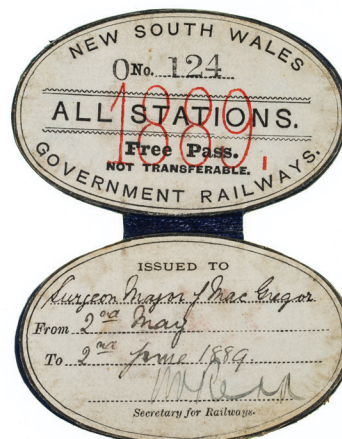 NEW SOUTH WALES
O No. 124
1889
ALL STATIONS.
Free Pass.
NOT TRANSFERABLE.
GOVERNMENT RAILWAYS.
ISSUED TO
Surgeon Major J MacGregor
From 2nd May
To 2nd June 1889.
Secretary for Railways.